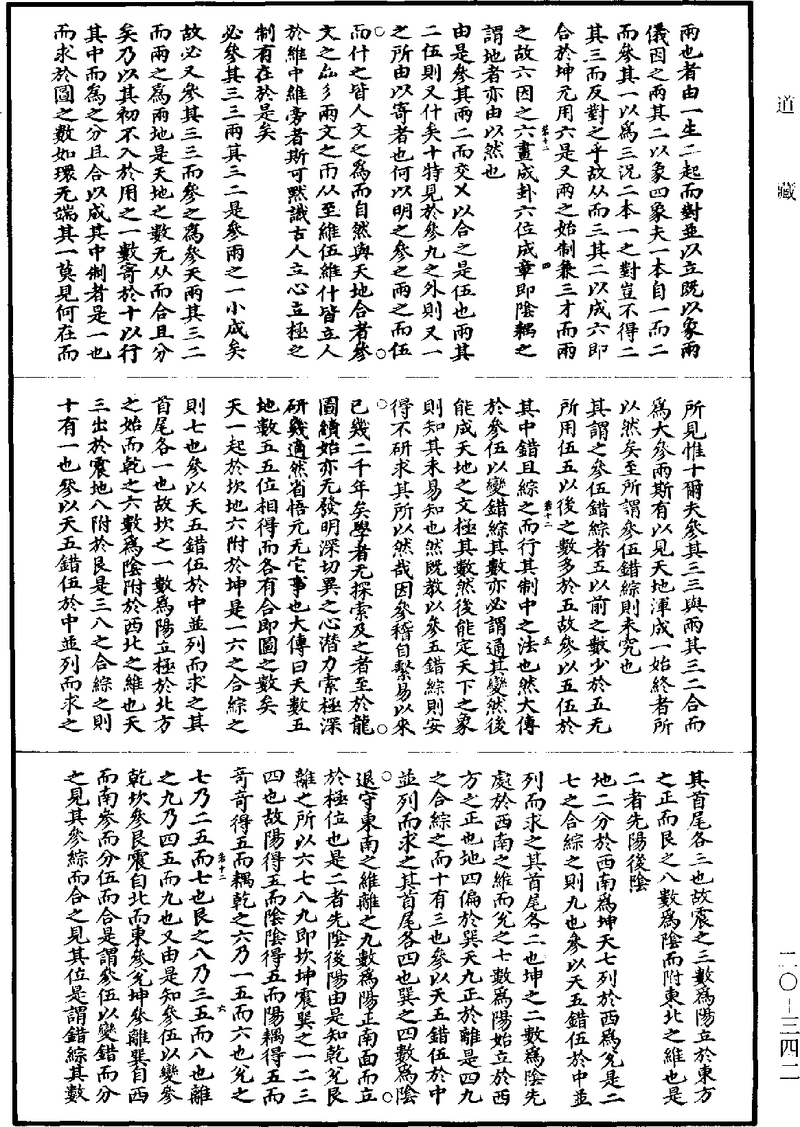 道藏
兩也者由一生二起而對並以立既以象兩
儀因之兩其二以象四象夫一本自一而二
而參其一以為三況二本一之對豈不得二
其三而反對之乎故从而三其二以成六即
合於坤元用六是又兩之始制兼三才而兩
之故六因之六畫成卦六位成章即陰耦之
謂地者亦由以然也
由是參其兩二而交乂以合之是伍也兩其
二伍則又什矣十特見於參九之外則又一
之所由以寄者也何以明之參之兩之而伍
而什之皆人文之為而自然與天地合者參
文之厽彡兩文之㒳从至維伍維什皆立人
於維中維旁者斯可默識古人立心立極之
制有在於是矣
必參其三三兩其三二是參兩之一小成矣
故必又參其三三而參之為參天兩其三二
而兩之為兩地是天地之數无从而合且分
矣乃以其初不入於用之一數寄於十以行
其中而為之分且合以成其中制者是一也
而求於圖之數如環无端其一莫見何在而
所見惟十爾夫參其三三與兩其三二合而
為大參兩斯有以見天地渾成一始終者所
以然矣至所謂參伍錯綜則未究也
其謂之參伍錯綜者五以前之數少於五无
所用伍五以後之數多於五故參以五伍於
其中錯且綜之而行其制中之法也然大傳
於參伍以變錯綜其數亦必謂通其變然後
能成天地之文極其數然後能定天下之象
則知其未易知也然既教以參五錯綜則安
得不研求其所以然哉因參稽自繫易以來
已幾二千年矣學者无探索及之者至於龍
圖續始亦无發明深切異之心潛力索極深
研幾適然省悟元无它事也大傳曰天數五
地數五五位相得而各有合即圖之數矣
天一起於坎地六附於坤是一六之合綜之
則七也參以天五錯伍於中並列而求之其
首尾各一也故坎之一數為陽立極於北方
之始而乾之六數為陰附於西北之維也天
三出於震地八附於艮是三八之合綜之則
十有一也參以天五錯伍於中並列而求之
其首尾各三也故震之三數為陽立於東方
之正而艮之八數為陰而附東北之維也是
二者先陽後陰
地二分於西南為坤天七列於西為兌是二
七之合綜之則九也參以天五錯伍於中並
列而求之其首尾各二也坤之二數為陰先
處於西南之維而兌之七數為陽始立於西
方之正也地四偏於巽天九正於離是四九
之合綜之而十有三也參以天五錯伍於中
並列而求之其首尾各四也巽之四數為陰
退守東南之維離之九數為陽正南面而立
於極位也是二者先陰後陽由是知乾兌艮
離之所以六七八九即坎坤震巽之一二三
四也故陽得五而陰陰得五而陽耦得五而
奇奇得五而耦乾之六乃一五而六也兌之
七乃二五而七也艮之八乃三五而八也離
之九乃四五而九也又由是知參伍以變參
乾坎參艮震自北而東參兌坤參離巽自西
而南參而分伍而合是謂參伍以變錯而分
之見其參綜而合之見其位是謂錯綜其數
二〇-三四二